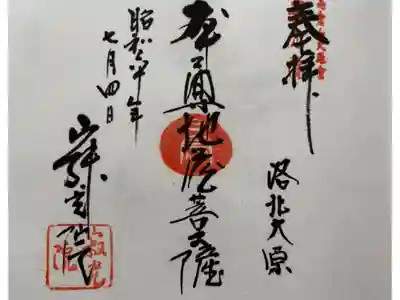 奉拝
洛北大原
本尊地蔵菩薩
昭和
七月四日
寂光院